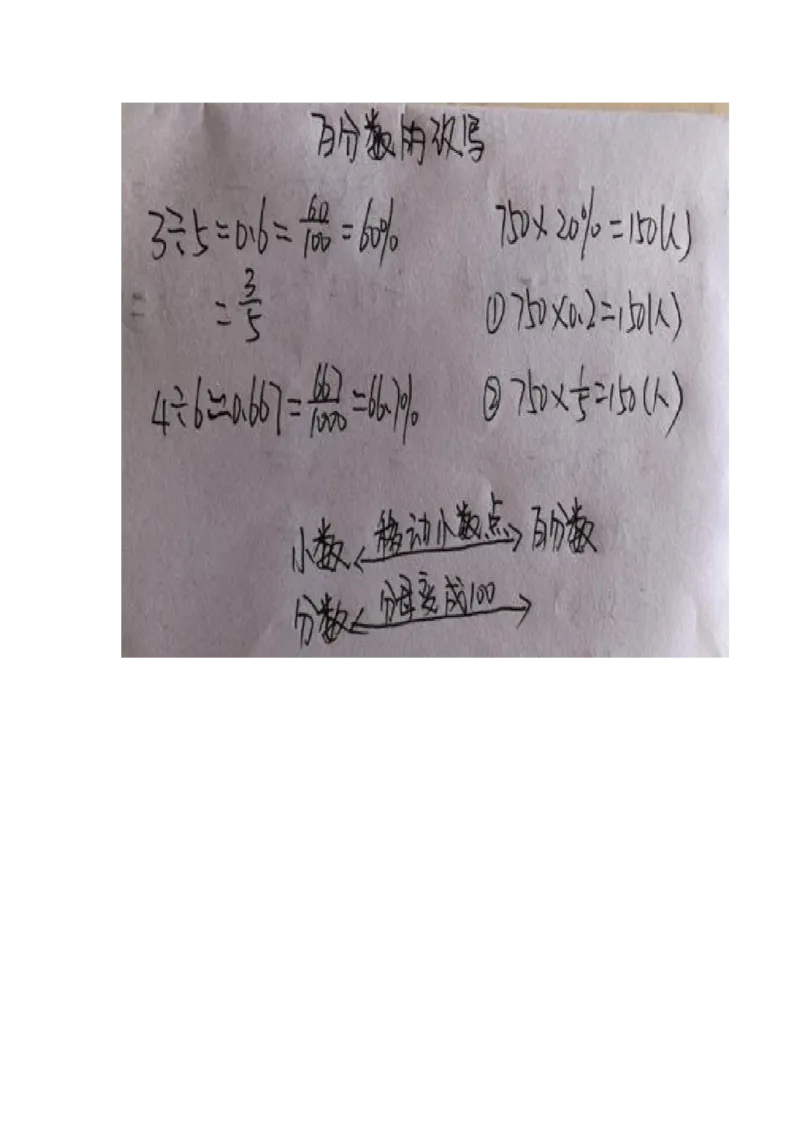 百分数的改写
3÷5=0.6=60/100=60%
=3/5
4÷6≈0.667=667/1000=66.7%
750×20%=150(人)
①750×0.2=150(人)
②750×1/5=150(人)
小数 移动小数点 百分数
分数 分母变成100